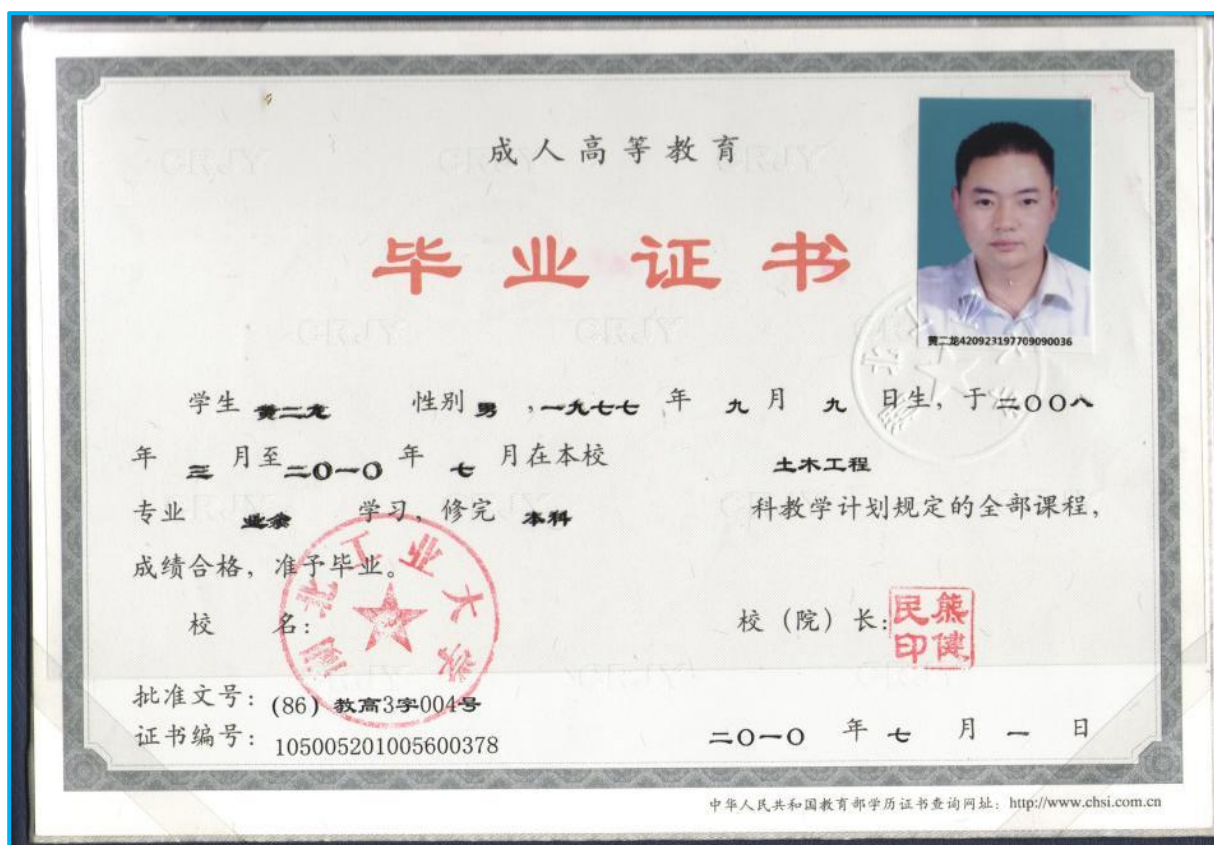 成人高等教育
毕业证书
黄二龙420923197709090036
学生 黄二龙 性别 男 ,一九七七 年 九 月 九 日生，于二〇〇八
年 三 月至二〇一〇 年 七 月在本校 土木工程
专业 业余 学习，修完 本科 科教学计划规定的全部课程，
成绩合格，准予毕业。
校 名：
湖北工业大学
校（院）长：
熊健民印
批准文号：(86) 教高3字004号
证书编号：105005201005600378
二〇一〇 年 七 月 一 日
中华人民共和国教育部学历证书查询网址：http://www.chsi.com.cn